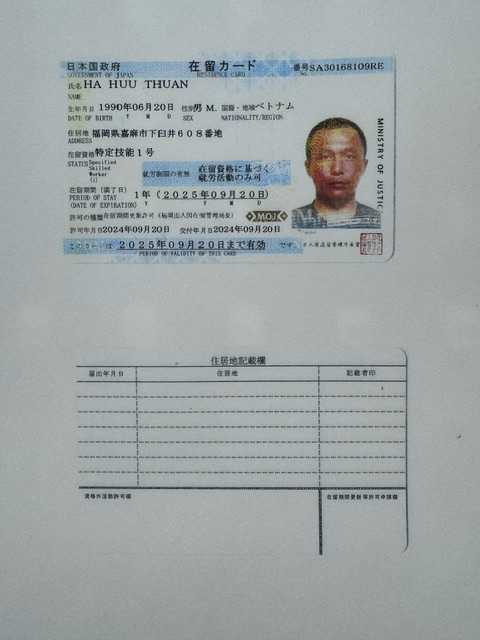 日本国政府 在留カード 番号 SA30168109RE
GOVERNMENT OF JAPAN RESIDENCE CARD No.
氏名 HA HUU THUAN
NAME
生年月日 1990年06月20日 性別 男 M. 国籍・地域 ベトナム
DATE OF BIRTH Y M D SEX NATIONALITY/REGION
住居地 福岡県嘉麻市下臼井608番地
ADDRESS
在留資格 特定技能1号
STATUS Specified
Skilled
Worker
(i)
就労制限の有無 在留資格に基づく
就労活動のみ可
在留期間(満了日) 1年(2025年09月20日)
PERIOD OF STAY Y Y M D
(DATE OF EXPIRATION)
MOJ
許可の種類 在留期間更新許可(福岡出入国在留管理局長)
許可年月日 2024年09月20日 交付年月日 2024年09月20日
このカードは 2025年09月20日まで有効 です。
PERIOD OF VALIDITY OF THIS CARD
MINISTRY OF JUSTICE
住居地記載欄
届出年月日 住居地 記載者印
資格外活動許可欄 在留期間更新等許可申請欄